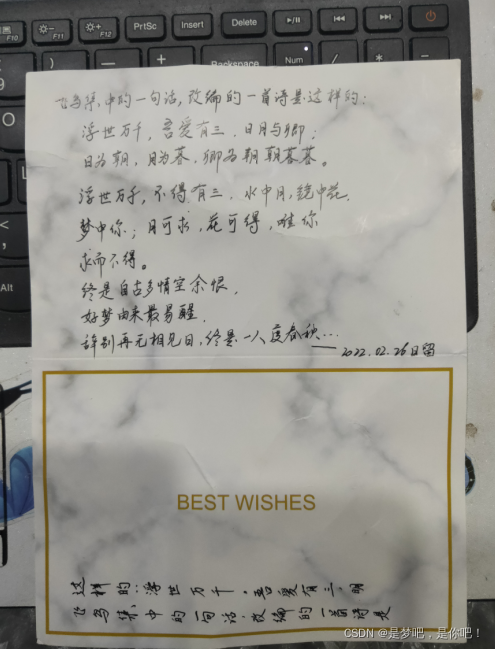 F10
F11
F12
PrtSc
Insert
Delete
Backspace
Num
Alt
飞鸟集中的一句话,改编的一首诗是这样的:
浮世万千,吾爱有三,日月与卿;
日为朝,月为暮,卿为朝朝暮暮。
浮世万千,不得有三,水中月,镜中花,
梦中你;月可求,花可得,唯你
求而不得。
终是自古多情空余恨,
好梦由来最易醒,
辞别再无相见日,终是一人度春秋...
——2022.02.26日留
BEST WISHES
这样的:浮世万千,吾爱有三,明
飞鸟集中的一句话,改编的一首诗是
CSDN @是梦吧,是你吧!